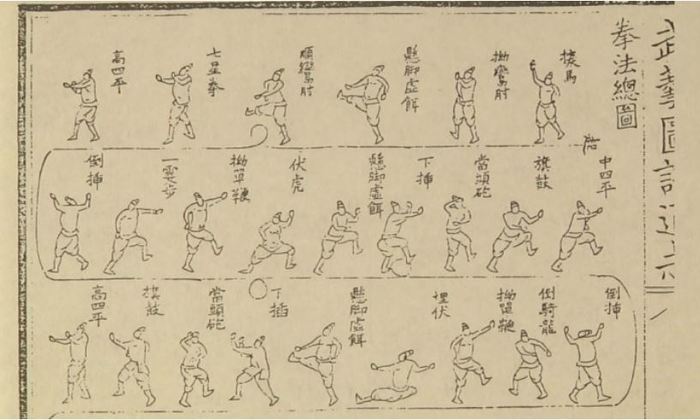 拳法總圖
探馬
拗鸞肘
懸脚虛餌
順鸞肘
七星拳
高四平
倒揷
一霎步
拗單鞭
伏虎
懸脚虛餌
下揷
當頭砲
旗鼓
中四平
倒揷
倒騎龍
拗單鞭
埋伏
懸脚虛餌
下揷
當頭砲
旗鼓
高四平